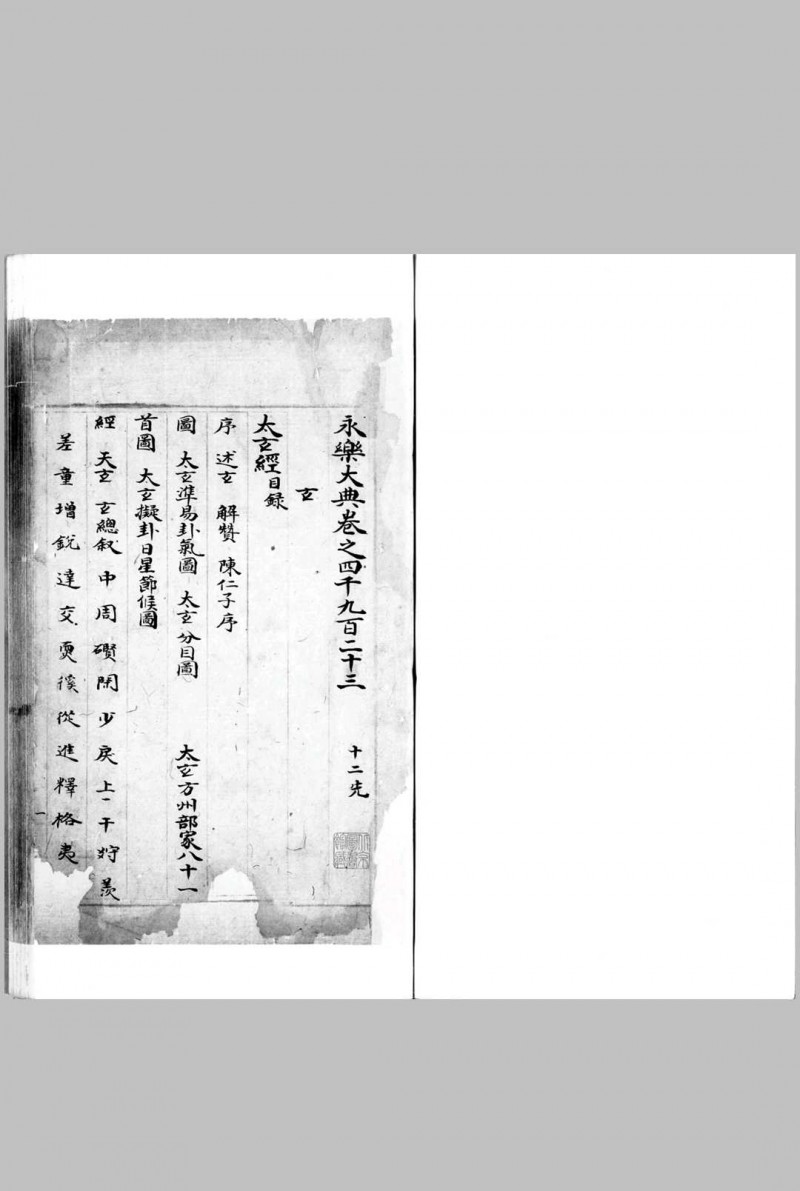 永樂大典卷之四千九百二十三 十二先
玄
太玄經目録
序 述玄 解贊 陳仁子序
圖 太玄準易卦氣圖 太玄分目圖 太玄方州部家八十一
首圖 太玄擬卦日星節候圖
經 天玄 玄總叙 中 周 礥 閑 少 戾 上 干 狩 羨
差 童 增 銳 達 交 耎 徯 從 進 釋 格 夷
一